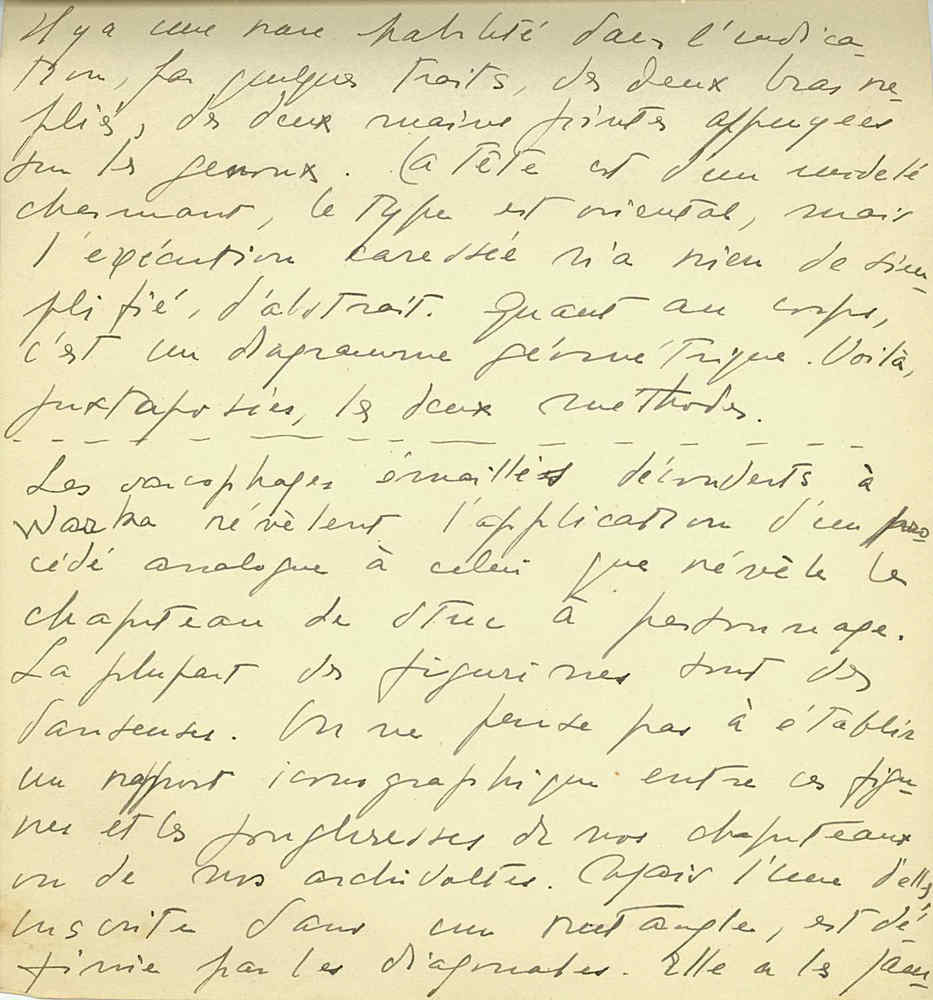 Il y a une rare habileté dans l'indica-
tion, par quelques traits, des deux bras re-
pliés, des deux mains jointes appuyées
sur les genoux. La tête est d'un modelé
charmant, le type est oriental, mais
l'exécution caressée n'a rien de sim-
plifié, d'abstrait. Quant au corps,
c'est un diagramme géométrique. Voilà,
juxtaposées, les deux méthodes.
Les sarcophages émaillés découverts à
Warka révèlent l'application d'un pro-
cédé analogue à celui que révèle le
chapiteau de stuc à personnage.
La plupart des figurines sont des
danseuses. On ne pense pas à établir
un rapport iconographique entre ces figu-
res et les jongleresses de nos chapiteaux
ou de nos archivoltes. Mais l'une d'elles,
inscrite dans un rectangle, est dé-
finie par les diagonales. Elle a les jam-